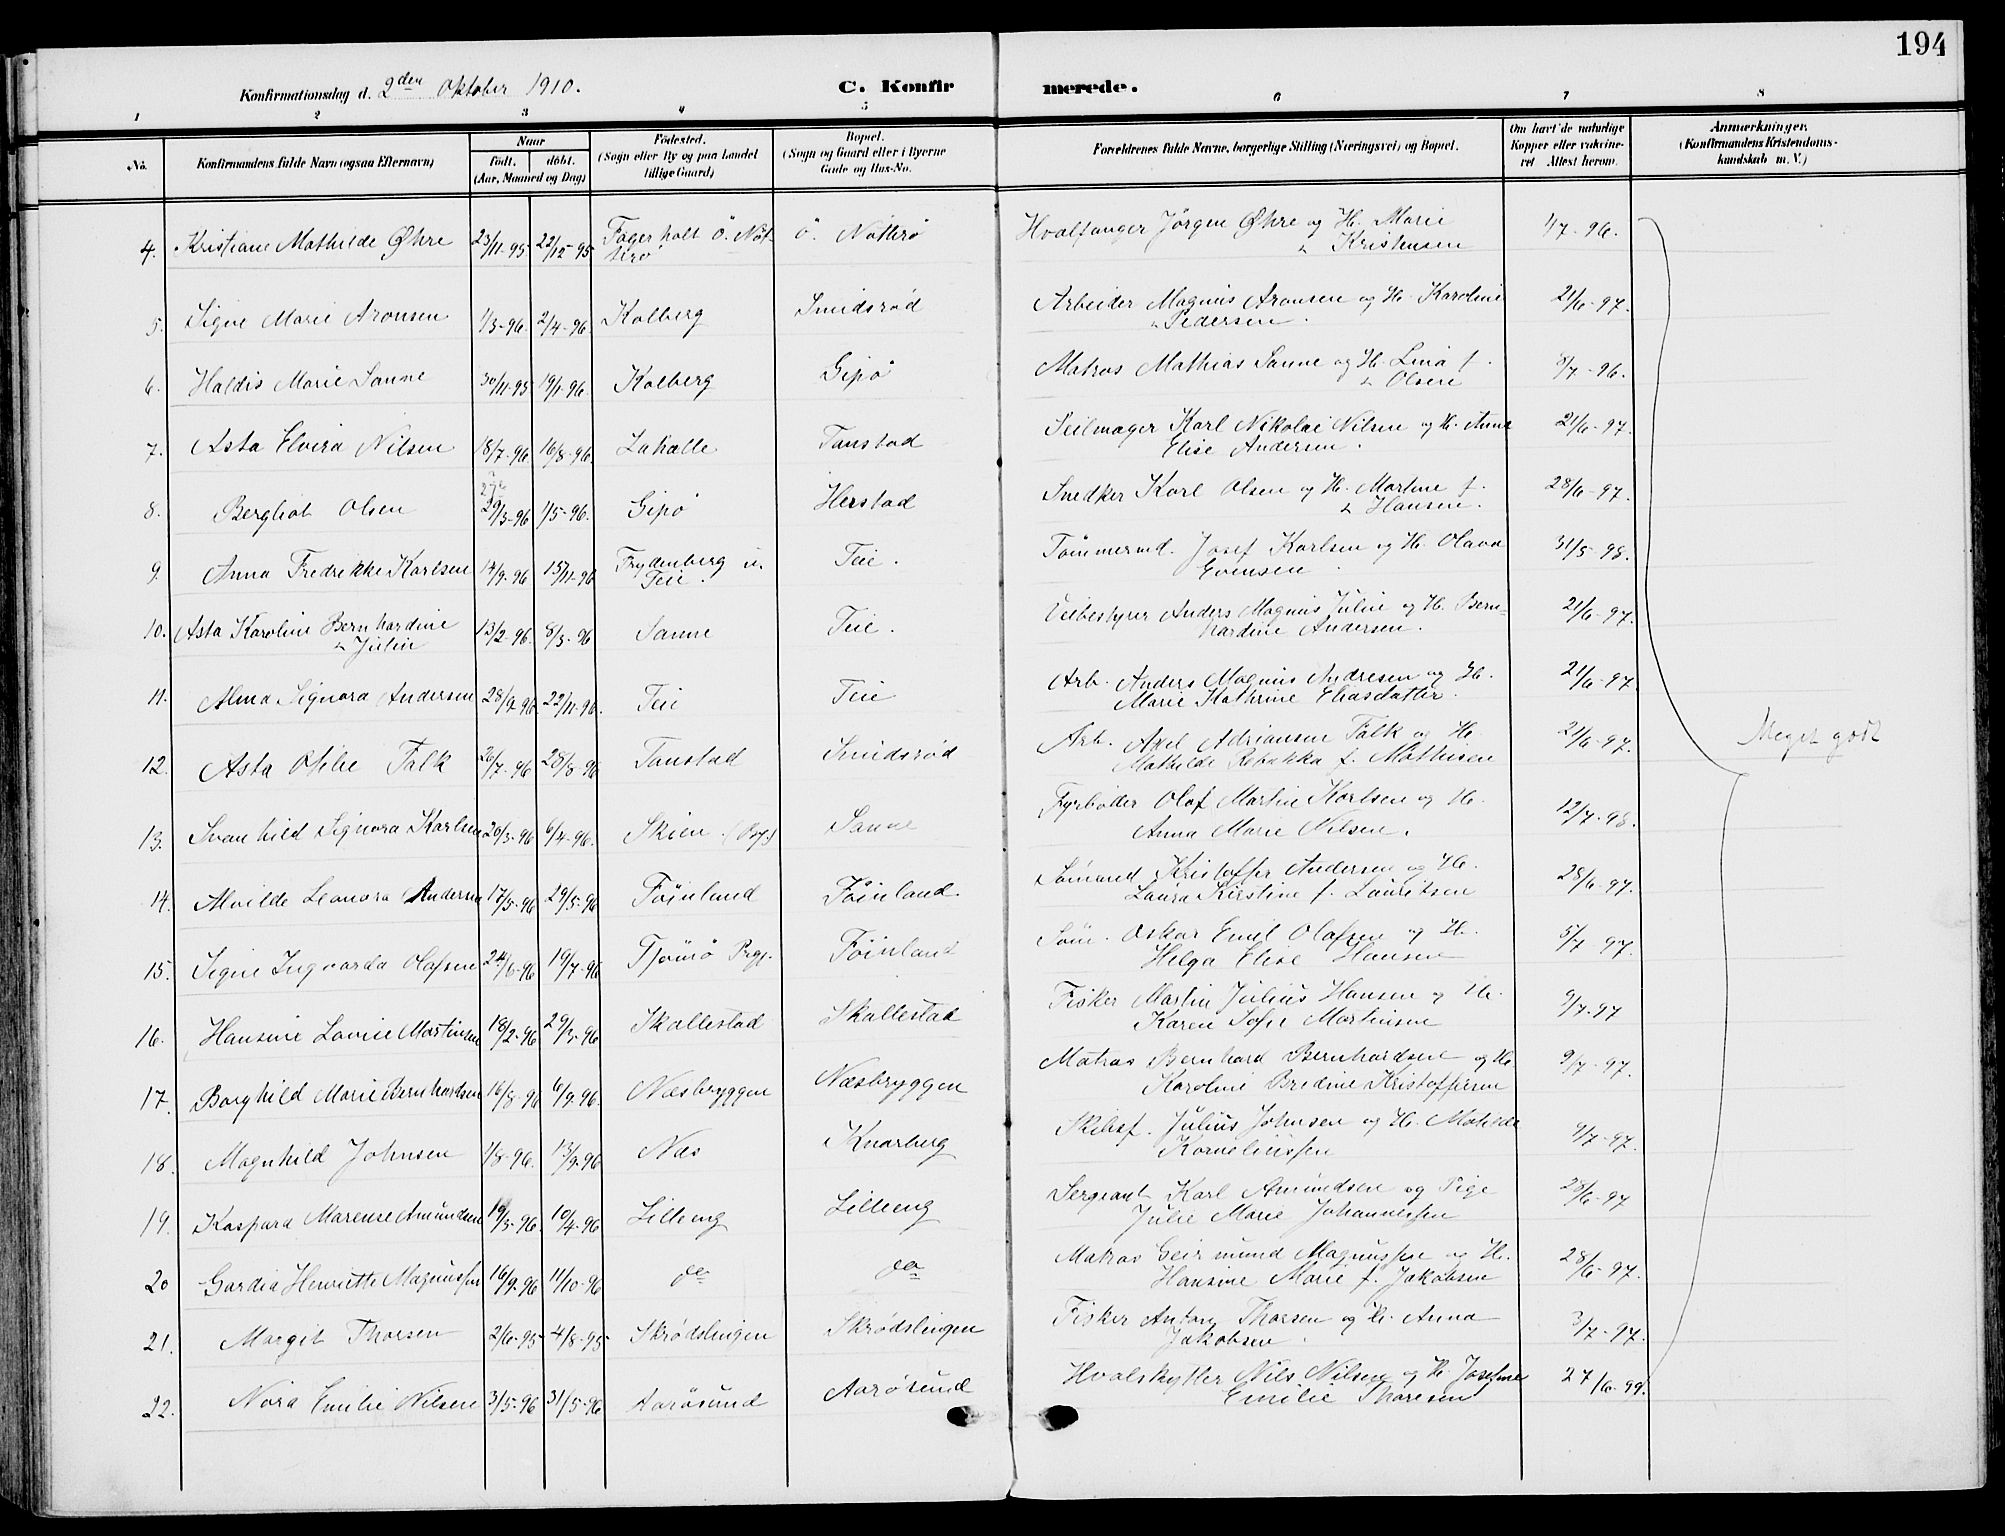 194
Konfirmationsdag d. 2den Oktober 1910.
C. Konfirmerede.
1 2 3 4 5 6 7 8
No.
Konfirmandens fulde Navn (ogsaa Efternavn)
Naar
født. døbt.
(Aar, Maaned og Dag)
Fødested.
(Sogn eller By og paa Landet
tillige Gaard)
Bopæl.
(Sogn og Gaard eller i Byerne
Gade og Hus-No.
Forældrenes fulde Navne, borgerlige Stilling (Næringsvei) og Bopæl.
Om havt de naturlige
Kopper eller vakcine-
ret Attest herom.
Anmærkninger.
(Konfirmandens Kristendoms-
kundskab m. V.)
4. Kristiane Mathilde Øhre 23/11-95 22/12-95 Fagerholt ö. Nøt- ö. Nøtterö Hvalfanger Jörgen Øhre og H. Marie 1/7-96.
terö Kristensen
5. Signe Marie Aronsen 1/3-96 2/4-96 Kolberg Smidsrød Arbeider Magnus Aronsen og H. Karoline 21/6-97.
Pedersen.
6. Haldis Marie Sanne 30/11-95 19/1-96 Kolberg Gipø Matros Mathias Sanne og H. Lina f. 8/7-96.
Olsen
7. Asta Elvira Nilsen 18/7-96 16/8-96 Lahalle Tanstad Seilmager Karl Nikolai Nilsen og H. Anna 21/6-97.
Elise Andersen.
8. Bergliot Olsen 29/3-96 1/5-96. Gipø Herstad Snedker Karl Olsen og H. Martine f. 28/6-97.
Hansen.
9. Anna Fredrikke Karlsen 14/9-96 15/11-96 Frydenberg u. Teie. Tømmermd. Josef Karlsen og H. Olava 31/5-98.
Teie. Evensen
10. Asta Karoline Bernhardine 13/2-96. 8/3-96 Sanne Teie. Veibestyrer Anders Magnus Julin og H. Bern- 21/6-97.
Julin hardine Andersen.
11. Alma Signora Andersen 28/9-96 22/11-96. Teie Teie Arb. Anders Magnus Andresen og H. 21/6-97.
Marie Kathrine Eliasdatter.
12. Asta Ofilie Falk 26/7-96 28/8-96 Tanstad Smidsrød Arb. Axel Adriansen Falk og H. 21/6-97.
Mathilde Rebekka f. Mathisen
Meget godt
13. Svanhild Signora Karlsen 26/3-96 6/4-96. Skien (By) Sanne Fyrbøder Olaf Martin Karlsen og H. 12/7-98.
Anna Marie Nilsen.
14. Alvilde Leonora Andersen 17/5-96 29/5-96 Føinland Føinland. Sømand Kristoffer Andersen og H. 28/6-97.
Laura Kirstine f. Lauritsen
15. Signe Ingvarda Olafsen 24/6-96 19/7-96 Tjømø Prgj. Føinland Søm. Oskar Emil Olafsen og H. 5/7 97.
Helga Elise Hansen
16. Hansine Lovise Martinsen 18/2-96 29/3-96 Skallestad Skallestad Fisker Martin Julius Hansen og H. 9/7-97
Karen Sofie Martinsen
17. Borghild Marie Bernhardsen 16/8-96 6/9-96. Næsbryggen Næsbryggen Matros Bernhard Bernhardsen og H. 9/7-97.
Karoline Bredine Kristoffersen
18. Magnhild Johnsen 1/8-96. 13/9-96 Næs Knarberg Skibsf. Julius Johnsen og H. Matilde 9/7-97.
Korneliussen
19. Kaspara Marense Amundsen 19/3-96. 10/4-96 Lilleeng Lilleeng Sergeant Karl Amundsen og Pige 28/6-97
Julie Marie Johannessen
20 Gardia Henriette Magnussen 16/9-96 11/10-96 do do Matros Geirmund Magnussen og H. 28/6-97.
Hansine Marie f. Jakobsen
21. Margit Thorsen 2/6-95 4/8-95 Skrødslingen Skrødslingen Fisker Anton Thorsen og H. Anna 3/7-97.
Jakobsen.
22. Nora Emilie Nilsen 3/5-96 31/5-96 Aarøsund Aarøsund Hvalskytter Nils Nilsen og H. Josefine 27/6-99.
Emilie Thoresen